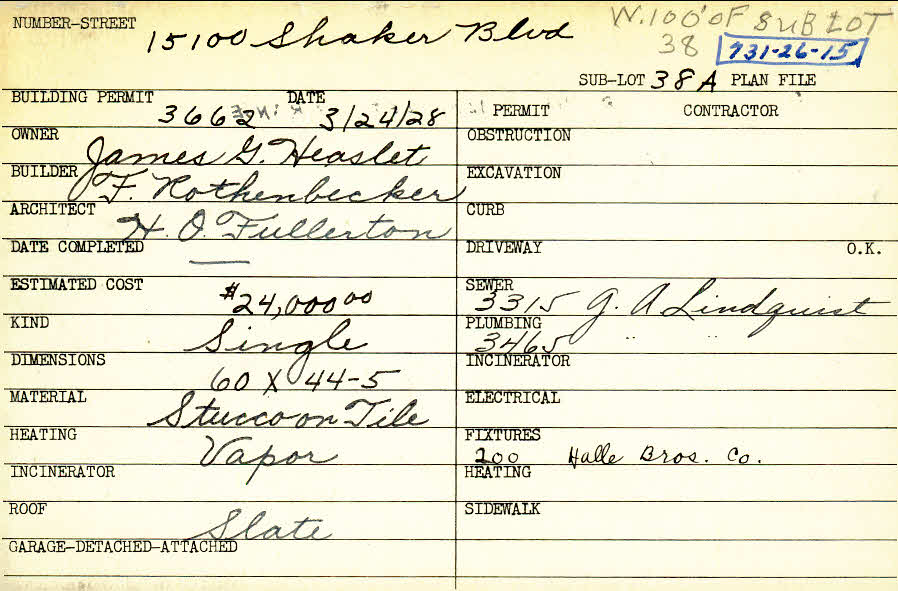 NUMBER-STREET 15100 Shaker Blvd
W. 100' OF SUB LOT
38 731-26-15
SUB-LOT 38A PLAN FILE
BUILDING PERMIT 3662 DATE 3/24/28
OWNER James G. Heaslet
BUILDER F. Rothenbecker
ARCHITECT H. O. Fullerton
DATE COMPLETED —
ESTIMATED COST $24,000 00
KIND Single
DIMENSIONS 60 X 44-5
MATERIAL Stucco on Tile
HEATING Vapor
INCINERATOR
ROOF Slate
GARAGE-DETACHED-ATTACHED
PERMIT CONTRACTOR
OBSTRUCTION
EXCAVATION
CURB
DRIVEWAY O.K.
SEWER 3315 G. A Lindquist
PLUMBING 3465 " "
INCINERATOR
ELECTRICAL
FIXTURES 200 Halle Bros. Co.
HEATING
SIDEWALK